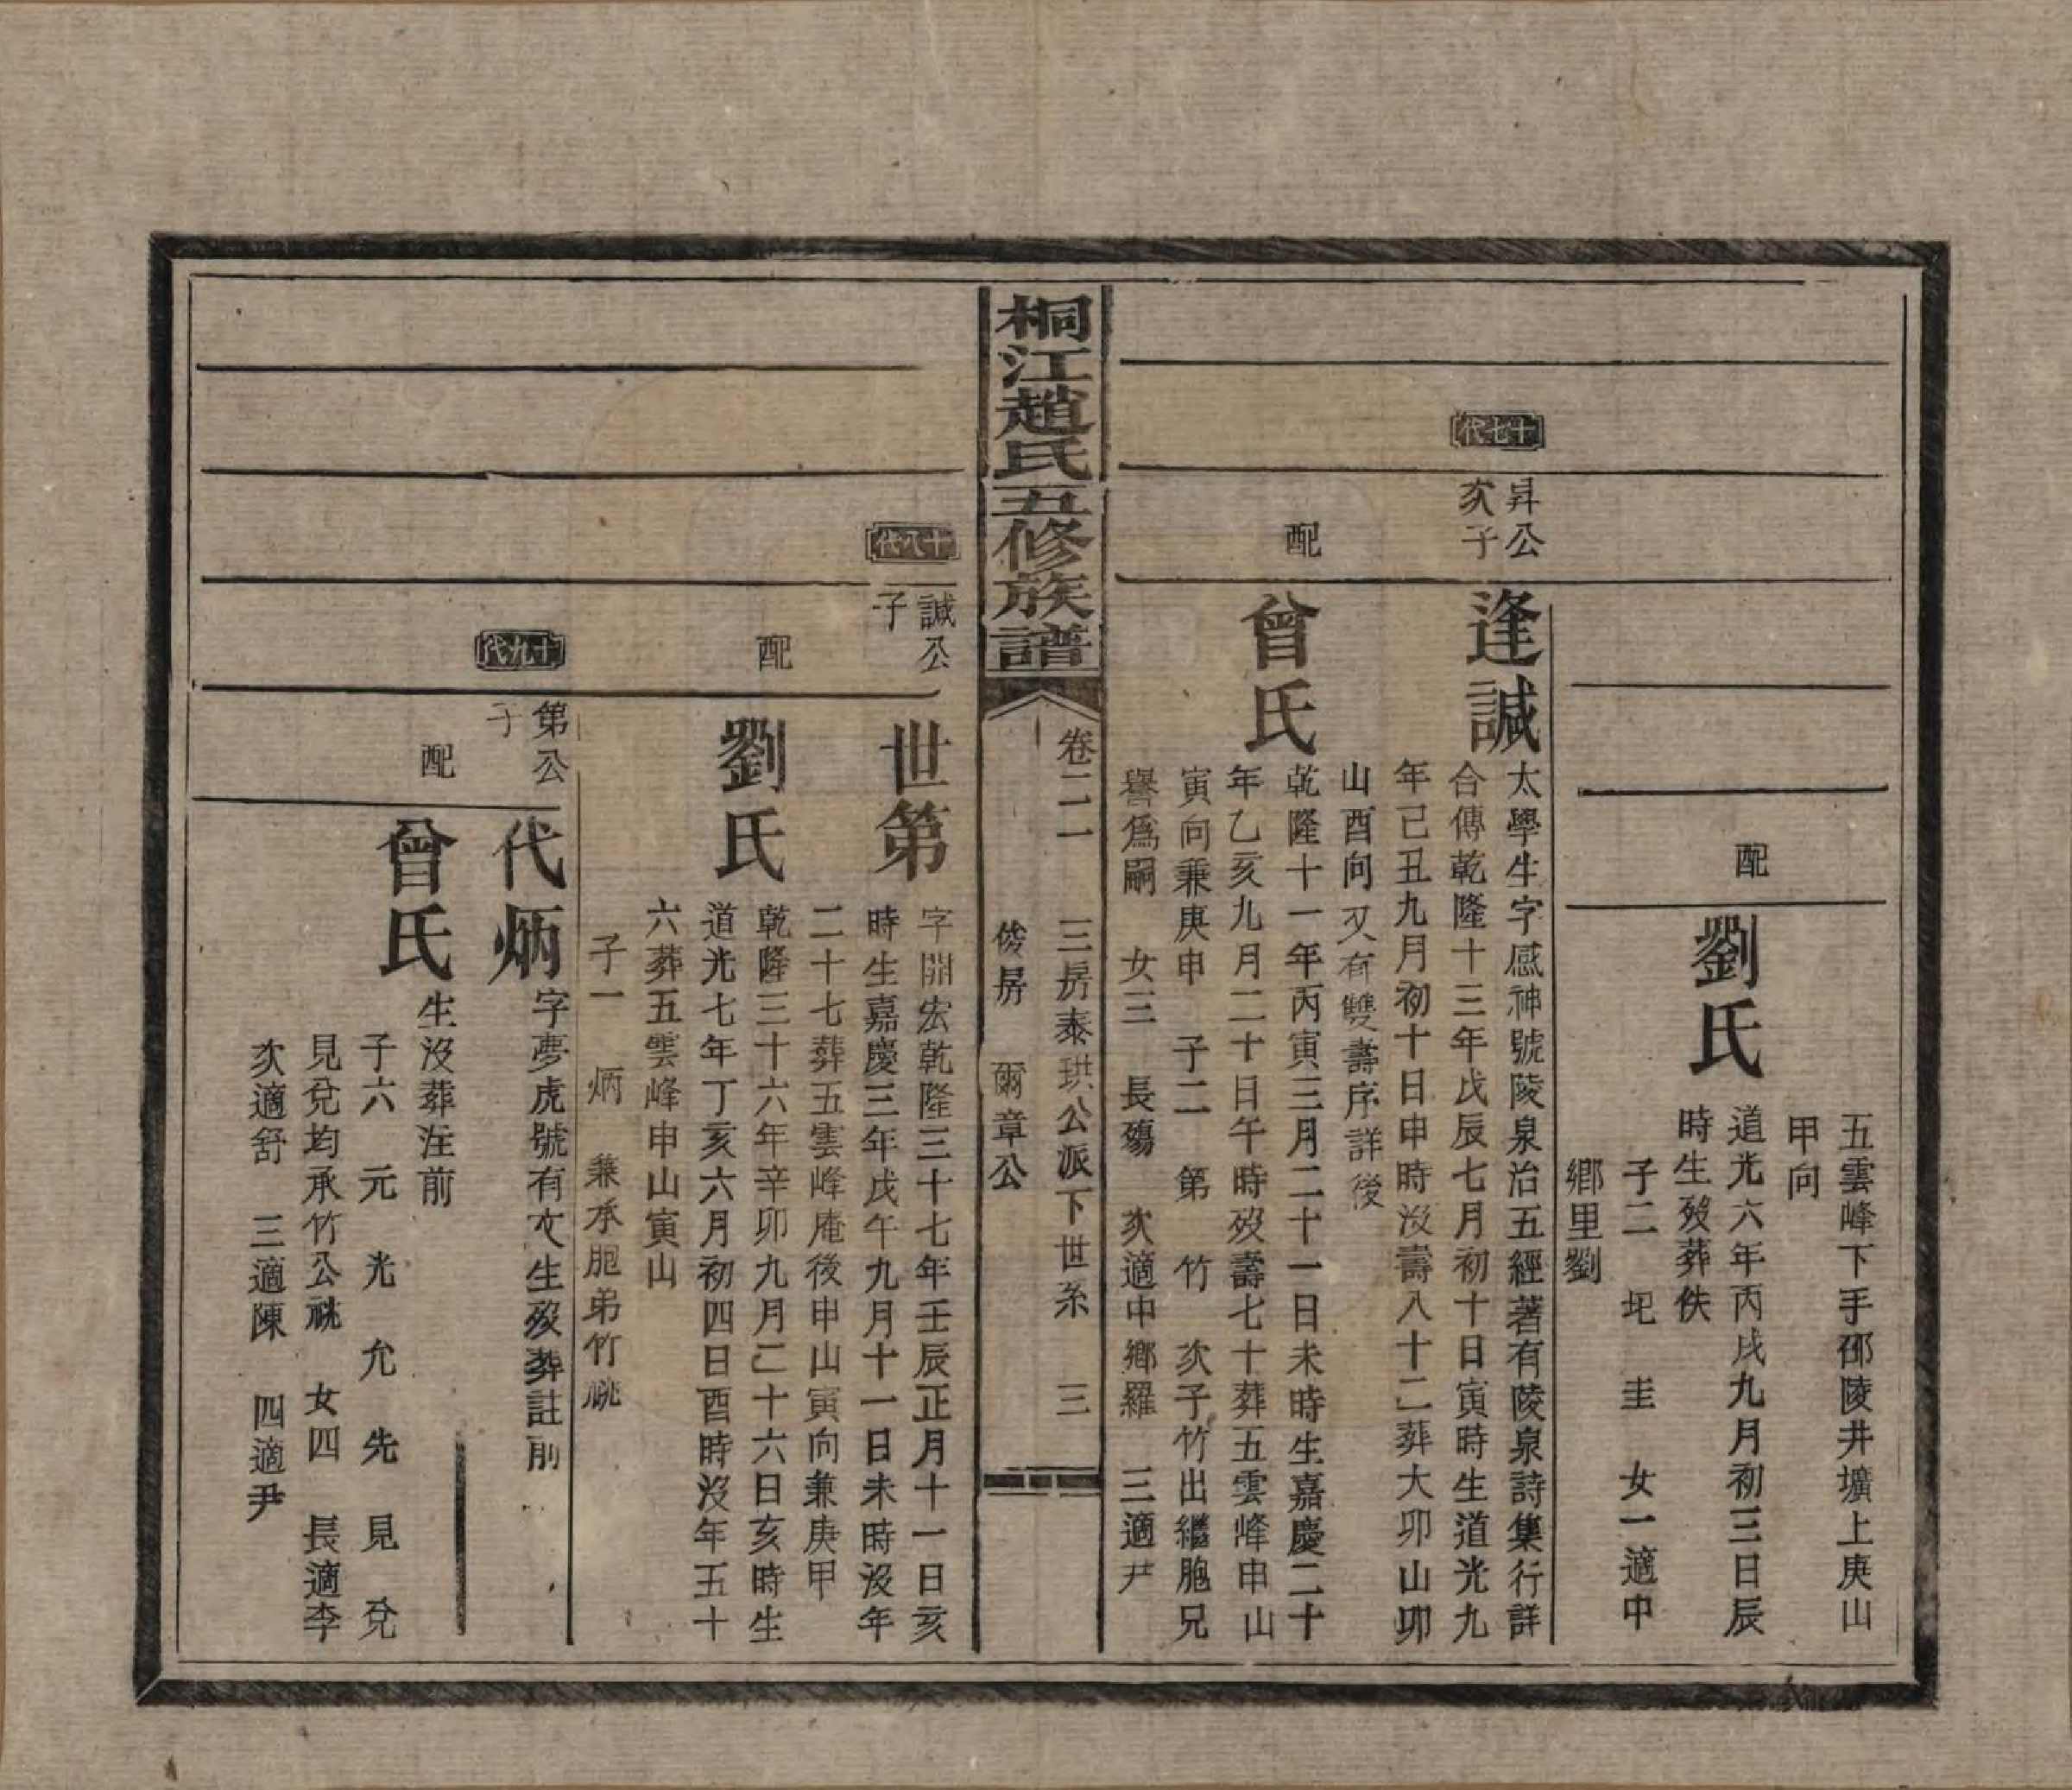 五雲峰下手邵陵井壙上庚山
甲向
配
劉氏
道光六年丙戌九月初三日辰
時生歿葬佚
子二 圯 圭 女一適中
鄉里劉
十七代
昇公
次子
逢諴
太學生字感神號陵泉治五經著有陵泉詩集行詳
合傳乾隆十三年戊辰七月初十日寅時生道光九
年己丑九月初十日申時沒壽八十二葬大卯山卯
山酉向又有雙壽序詳後
配
曾氏
乾隆十一年丙寅三月二十一日未時生嘉慶二十
年乙亥九月二十日午時歿壽七十葬五雲峰申山
寅向兼庚申 子二 第 竹 次子竹出繼胞兄
譽爲嗣 女三 長殤 次適中鄉羅 三適尹
桐江趙氏五修族譜
卷二一 三房泰珙公派下世系 三
俊房 爾章公
十八代
諴公
子
世第
字開宏乾隆三十七年壬辰正月十一日亥
時生嘉慶三年戊午九月十一日未時沒年
二十七葬五雲峰庵後申山寅向兼庚甲
配
劉氏
乾隆三十六年辛卯九月二十六日亥時生
道光七年丁亥六月初四日酉時沒年五十
六葬五雲峰申山寅山
子一 炳 兼承胞弟竹祧
十九代
第公
子
代炳
字夢虎號有文生歿葬註前
配
曾氏
生沒葬注前
子六 元 光 允 先 見 兌
見兌均承竹公祧 女四 長適李
次適舒 三適陳 四適尹